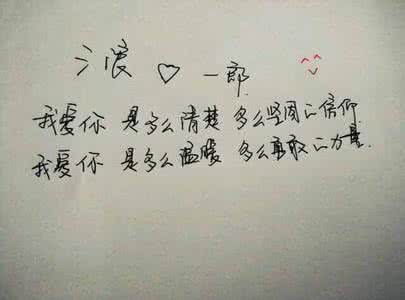 ♡ 一郎.
我爱你 是多么清楚 多么坚固的信仰.
我爱你 是多么温暖 多么勇敢的力量.